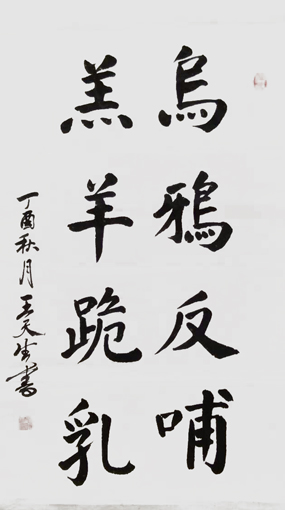 烏鴉反哺
羔羊跪乳
丁酉秋月王天生書